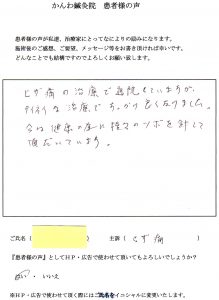 かんわ鍼灸院　患者様の声
患者様の声が私達、治療家にとってなによりの励みになります。
施術後のご感想、ご要望、メッセージ等をお書き頂ければ幸いです。
どんなことでも結構ですのでよろしくお願い致します。
ヒザ痛の治療で通院していますが、
治療ですっかり良くなりました。
今は健康の為に様々のツボを針して
頂いています。
ご氏名（　　　　　）　主訴（ひざ痛　　）
『患者様の声』としてHP・広告で使わせて頂いてもよろしいでしょうか？
はい・いいえ
※HP・広告で使わせて頂く際にはご氏名をイニシャルに変更いたします。